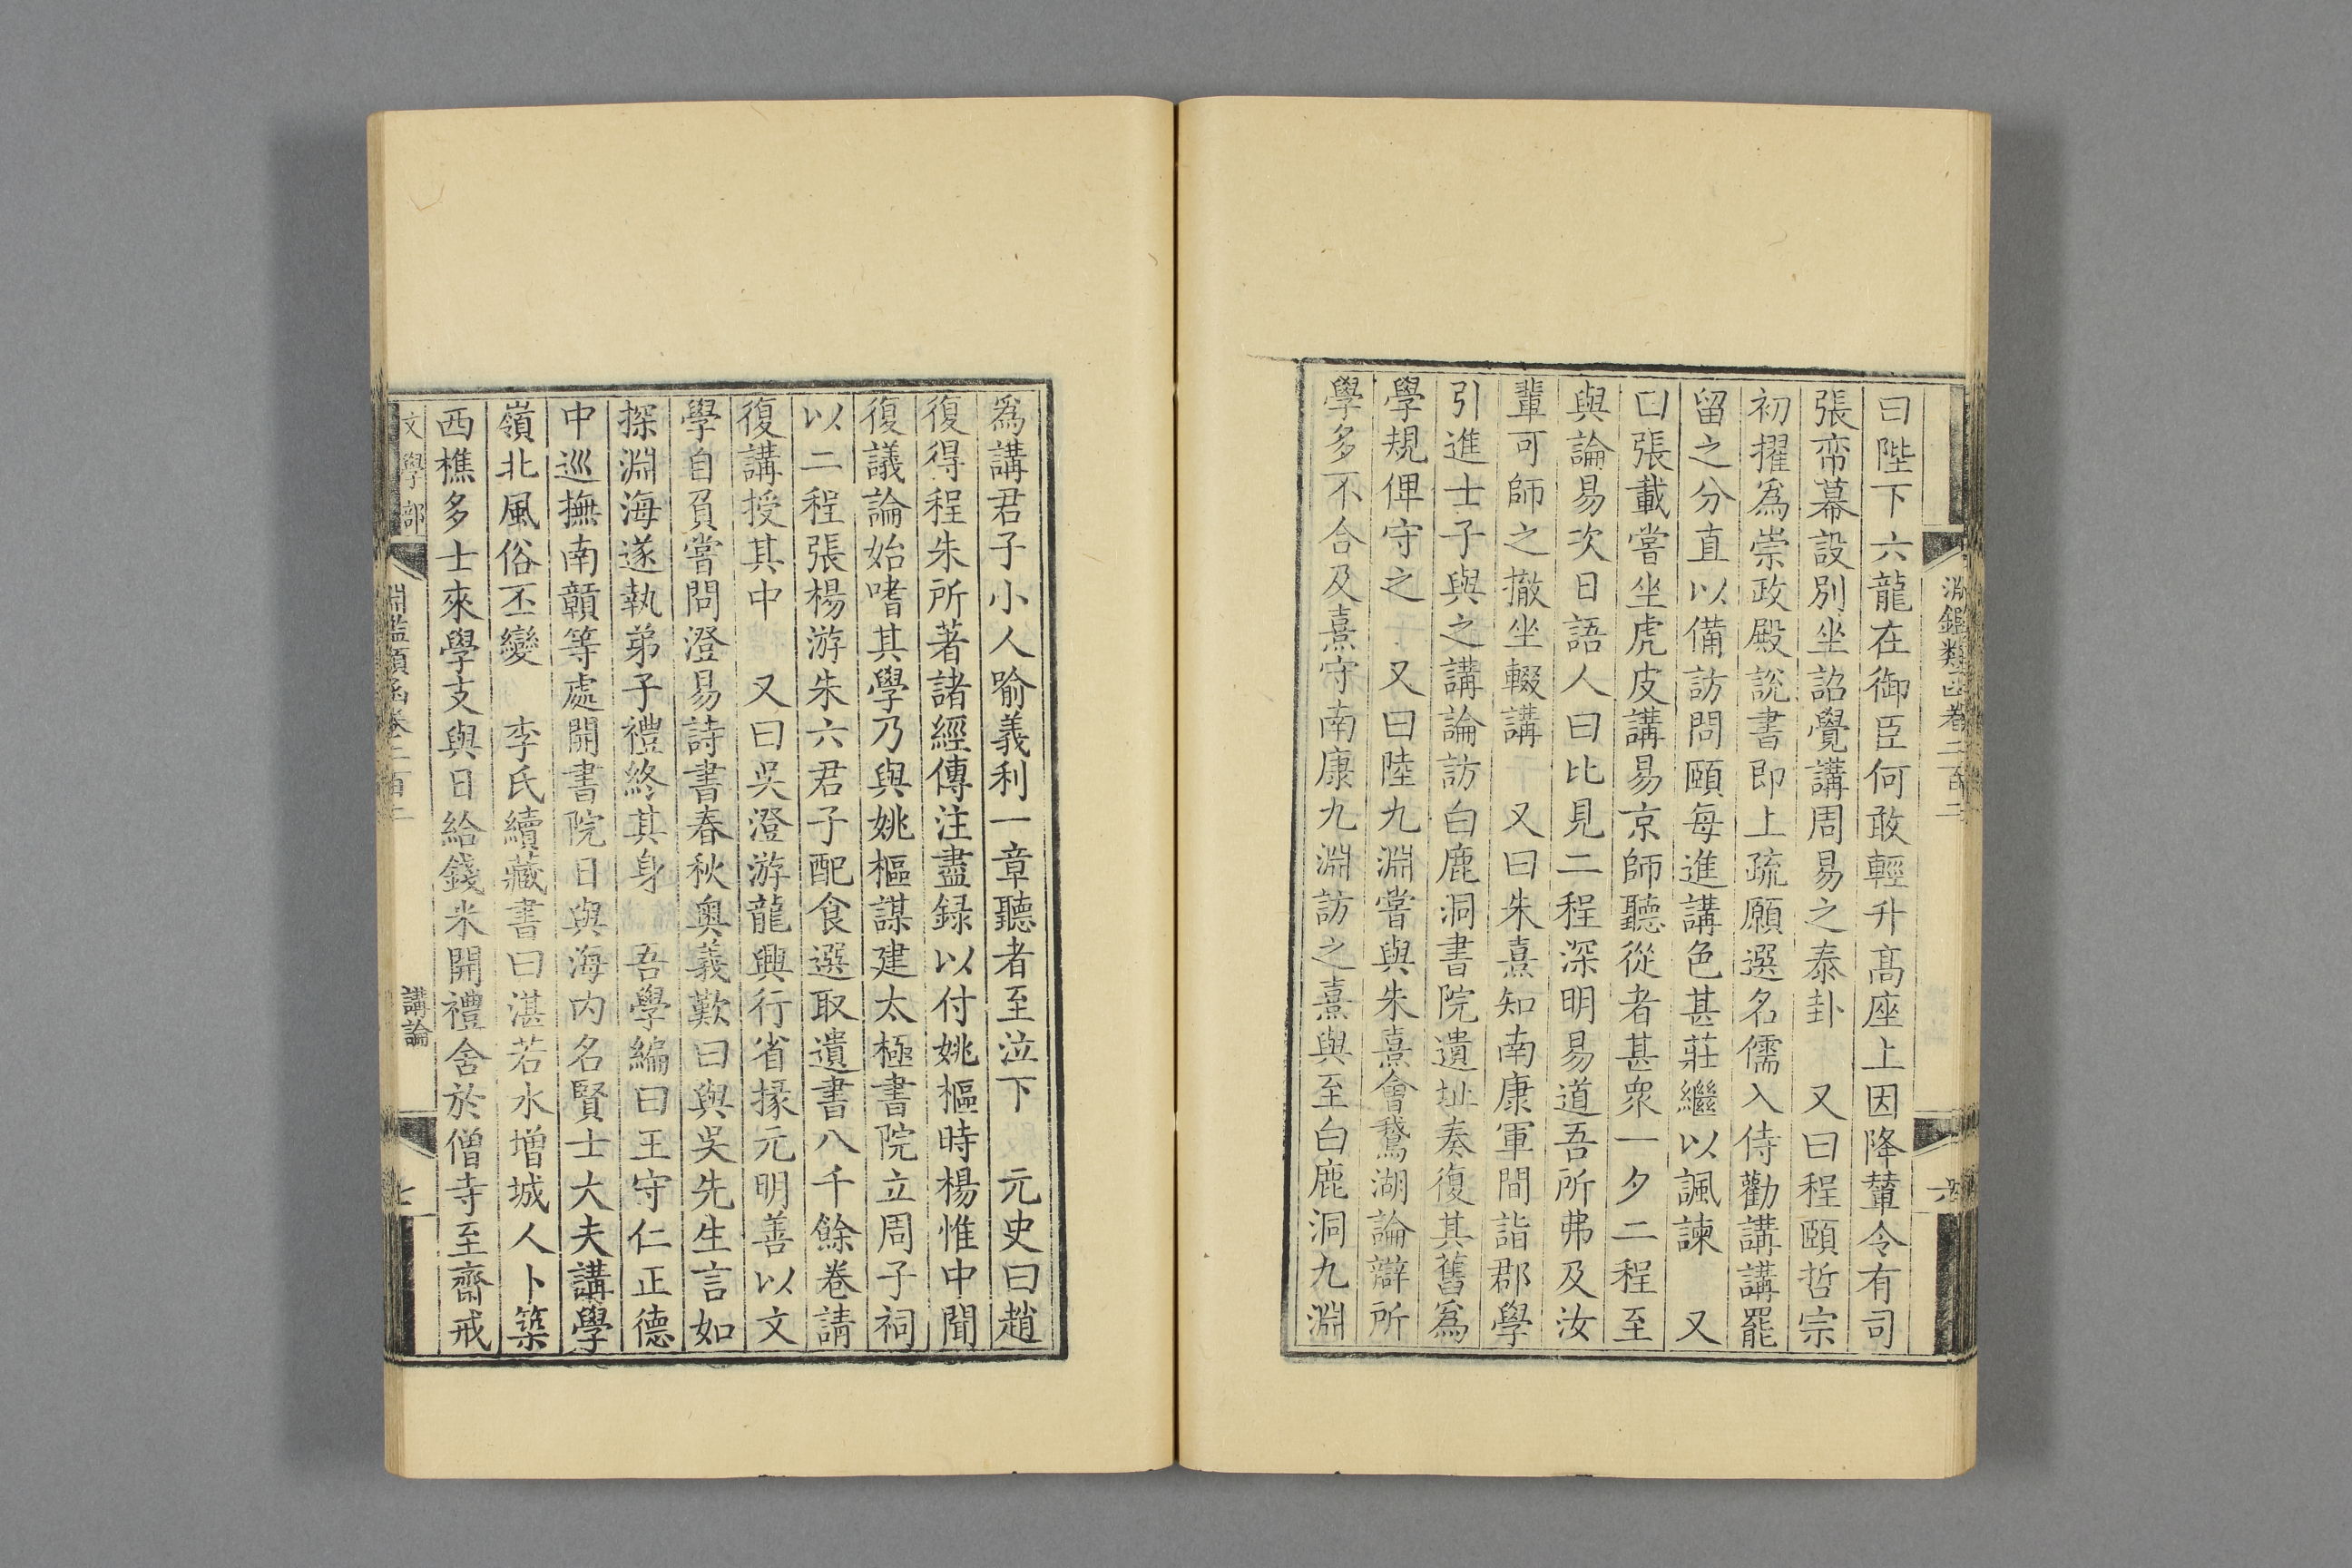 淵鑑類函卷二百二
曰陛下六龍在御臣何敢輕升髙座上因降輦令有司
張帟幕設別坐詔覺講周易之泰卦 又曰程頤哲宗
初擢爲崇政殿說書即上疏願選名儒入侍勸講講罷
留之分直以備訪問頤每進講色甚莊繼以諷諫 又
曰張載嘗坐虎皮講易京師聽從者甚衆一夕二程至
與論易次日語人曰比見二程深明易道吾所弗及汝
輩可師之撤坐輟講 又曰朱熹知南康軍間詣郡學
引進士子與之講論訪白鹿洞書院遺址奏復其舊爲
學規俾守之 又曰陸九淵嘗與朱熹會鵞湖論辯所
學多不合及熹守南康九淵訪之熹與至白鹿洞九淵
爲講君子小人喻義利一章聽者至泣下 元史曰趙
復得程朱所著諸經傳注盡録以付姚樞時楊惟中聞
復議論始嗜其學乃與姚樞謀建太極書院立周子祠
以二程張楊游朱六君子配食選取遺書八千餘卷請
復講授其中 又曰吳澄游龍興行省掾元明善以文
學自負嘗問澄易詩書春秋奧義歎曰與吳先生言如
探淵海遂執弟子禮終其身 吾學編曰王守仁正德
中巡撫南贛等處開書院日與海内名賢士大夫講學
嶺北風俗丕變 李氏續藏書曰湛若水增城人卜築
西樵多士來學支與日給錢米開禮舍於僧寺至齋戒
文學部 淵鑑類函卷二百二 講論 七